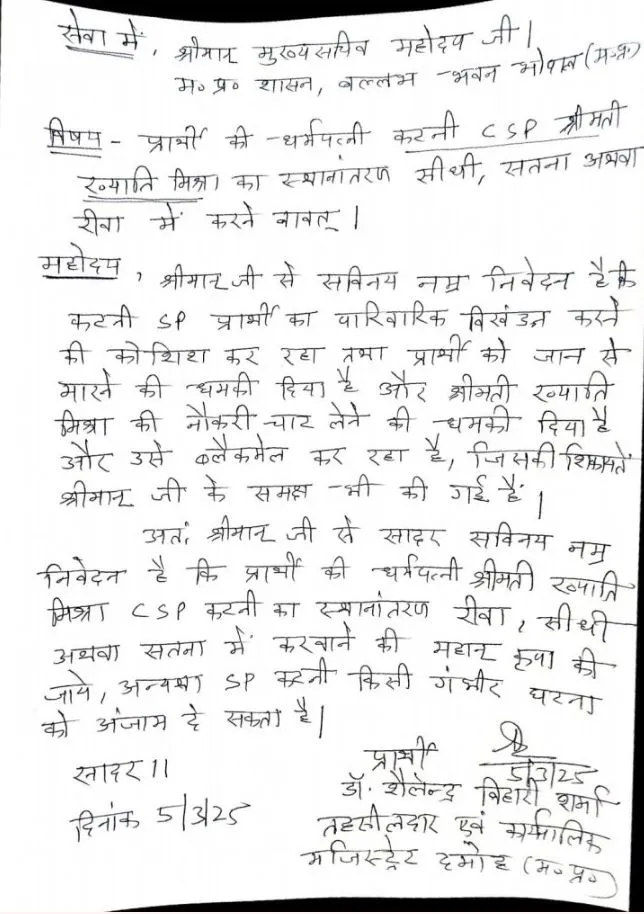 सेवा में, श्रीमान् मुख्यसचिव महोदय जी।
म॰ प्र॰ शासन, वल्लभ भवन भोपाल (म॰प्र॰)
विषय - प्रार्थी की धर्मपत्नी कटनी CSP श्रीमती
ख्याति मिश्रा का स्थानांतरण सीधी, सतना अथवा
रीवा में करने बावत्।
महोदय, श्रीमान् जी से सविनय नम्र निवेदन है कि
कटनी SP प्रार्थी का पारिवारिक विखंडन करने
की कोशिश कर रहा तथा प्रार्थी को जान से
मारने की धमकी दिया है और श्रीमती ख्याति
मिश्रा की नौकरी चाट लेने की धमकी दिया है
और उसे ब्लैकमेल कर रहा है, जिसकी शिकायतें
श्रीमान् जी के समक्ष भी की गई हैं।
अतः श्रीमान् जी से सादर सविनय नम्र
निवेदन है कि प्रार्थी की धर्मपत्नी श्रीमती ख्याति
मिश्रा CSP कटनी का स्थानांतरण रीवा, सीधी
अथवा सतना में करवाने की महान् कृपा की
जाये, अन्यथा SP कटनी किसी गंभीर घटना
को अंजाम दे सकता है।
सादर॥
दिनांक 5/3/25
प्रार्थी
5/3/25
डॉ. शैलेन्द्र बिहारी शर्मा
तहसीलदार एवं कार्यपालिक
मजिस्ट्रेट दमोह (म॰प्र॰)